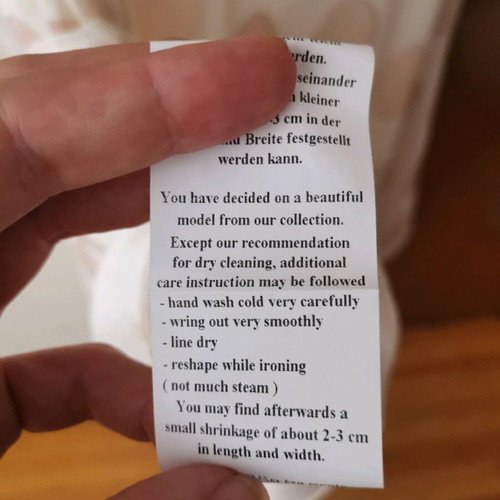 rden.
seinander
kleiner
-3 cm in der
Breite festgestellt
werden kann.
You have decided on a beautiful
model from our collection.
Except our recommendation
for dry cleaning, additional
care instruction may be followed
- hand wash cold very carefully
- wring out very smoothly
- line dry
- reshape while ironing
( not much steam )
You may find afterwards a
small shrinkage of about 2-3 cm
in length and width.